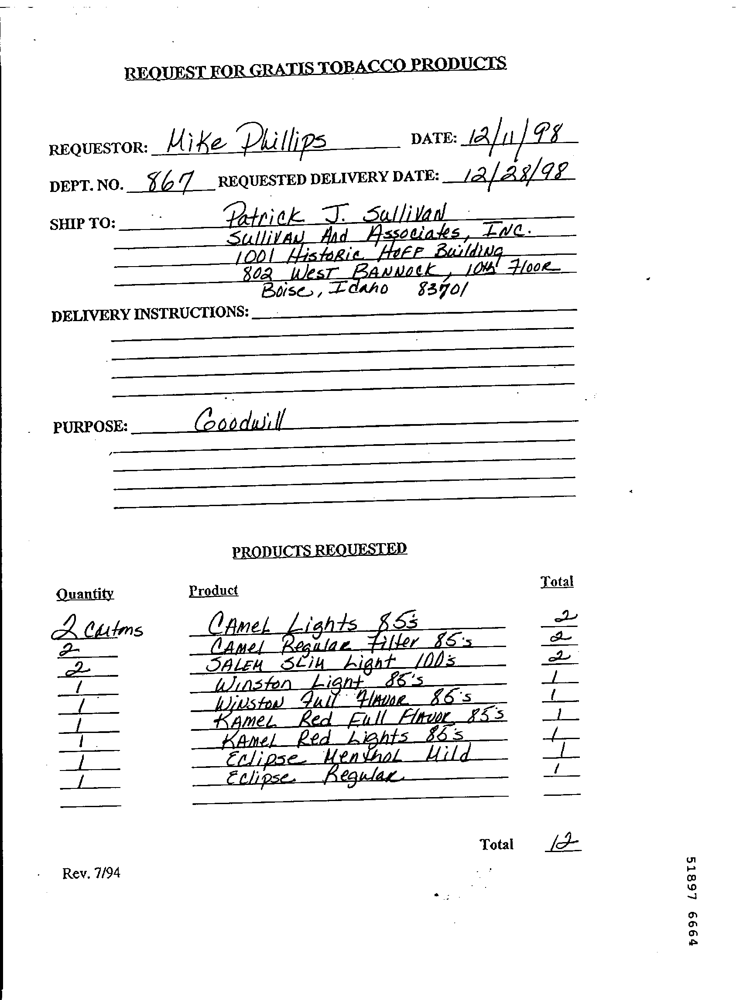 REQUEST FOR GRATIS TOBACCO PRODUCTS
REQUESTOR: Mike Phillips DATE: 12/11/98
DEPT. NO. 867 REQUESTED DELIVERY DATE: 12/28/98
SHIP TO: Patrick J. Sullivan
Sullivan And Associates, Inc.
1001 Historic Hoff Building
802 West Bannock, 10th Floor
Boise, Idaho 83701
DELIVERY INSTRUCTIONS:
PURPOSE: Goodwill
PRODUCTS REQUESTED
Quantity Product Total
2 Cartons Camel Lights 85's 2
2 Camel Regular Filter 85's 2
2 Salem Slim Light 100's 2
1 Winston Light 85's 1
1 Winston Full Flavor 85's 1
1 Kamel Red Full Flavor 85's 1
1 Kamel Red Lights 85's 1
1 Eclipse Menthol Mild 1
1 Eclipse Regular 1
Total 12
Rev. 7/94
51897 6664